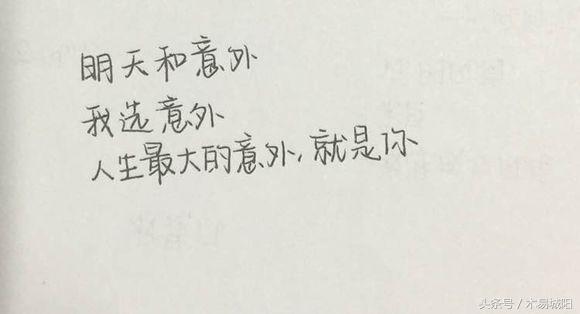 明天和意外
我选意外
人生最大的意外,就是你
头条号 / 木易城阳